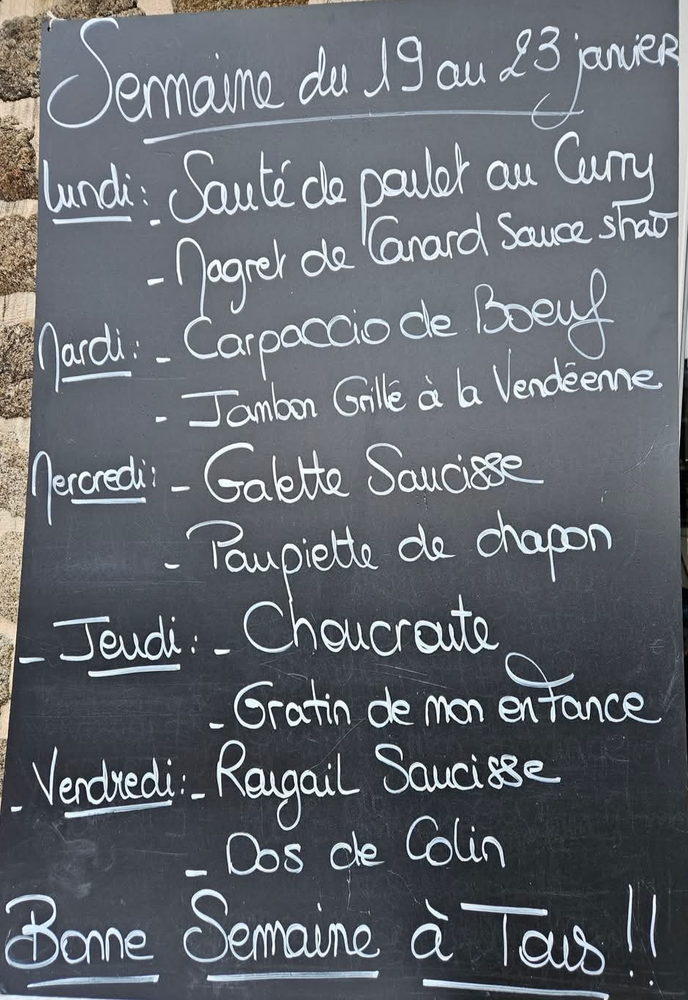 Semaine du 19 au 23 janvier
Lundi : - Sauté de poulet au Curry
- Magret de Canard Sauce shao
Mardi : - Carpaccio de Boeuf
- Jambon Grillé à la Vendéenne
Mercredi : - Galette Saucisse
- Paupiette de chapon
- Jeudi : - Choucroute
- Gratin de mon enfance
- Vendredi : - Rougail Saucisse
- Dos de Colin
Bonne Semaine à Tous !!